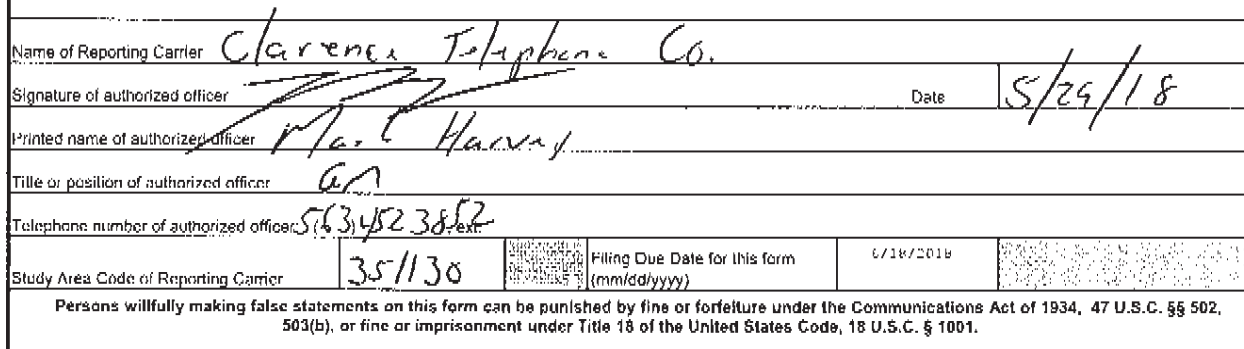 Name of Reporting Carrier Clarence Telephone Co.
Signature of authorized officer Date 5/29/18
Printed name of authorized officer Harvey
Title or position of authorized officer GM
Telephone number of authorized officer: (563) 452 3852 ext.
Study Area Code of Reporting Carrier 351130 Filing Due Date for this form 6/18/2018
(mm/dd/yyyy)
Persons willfully making false statements on this form can be punished by fine or forfeiture under the Communications Act of 1934, 47 U.S.C. §§ 502,
503(b), or fine or imprisonment under Title 18 of the United States Code, 18 U.S.C. § 1001.